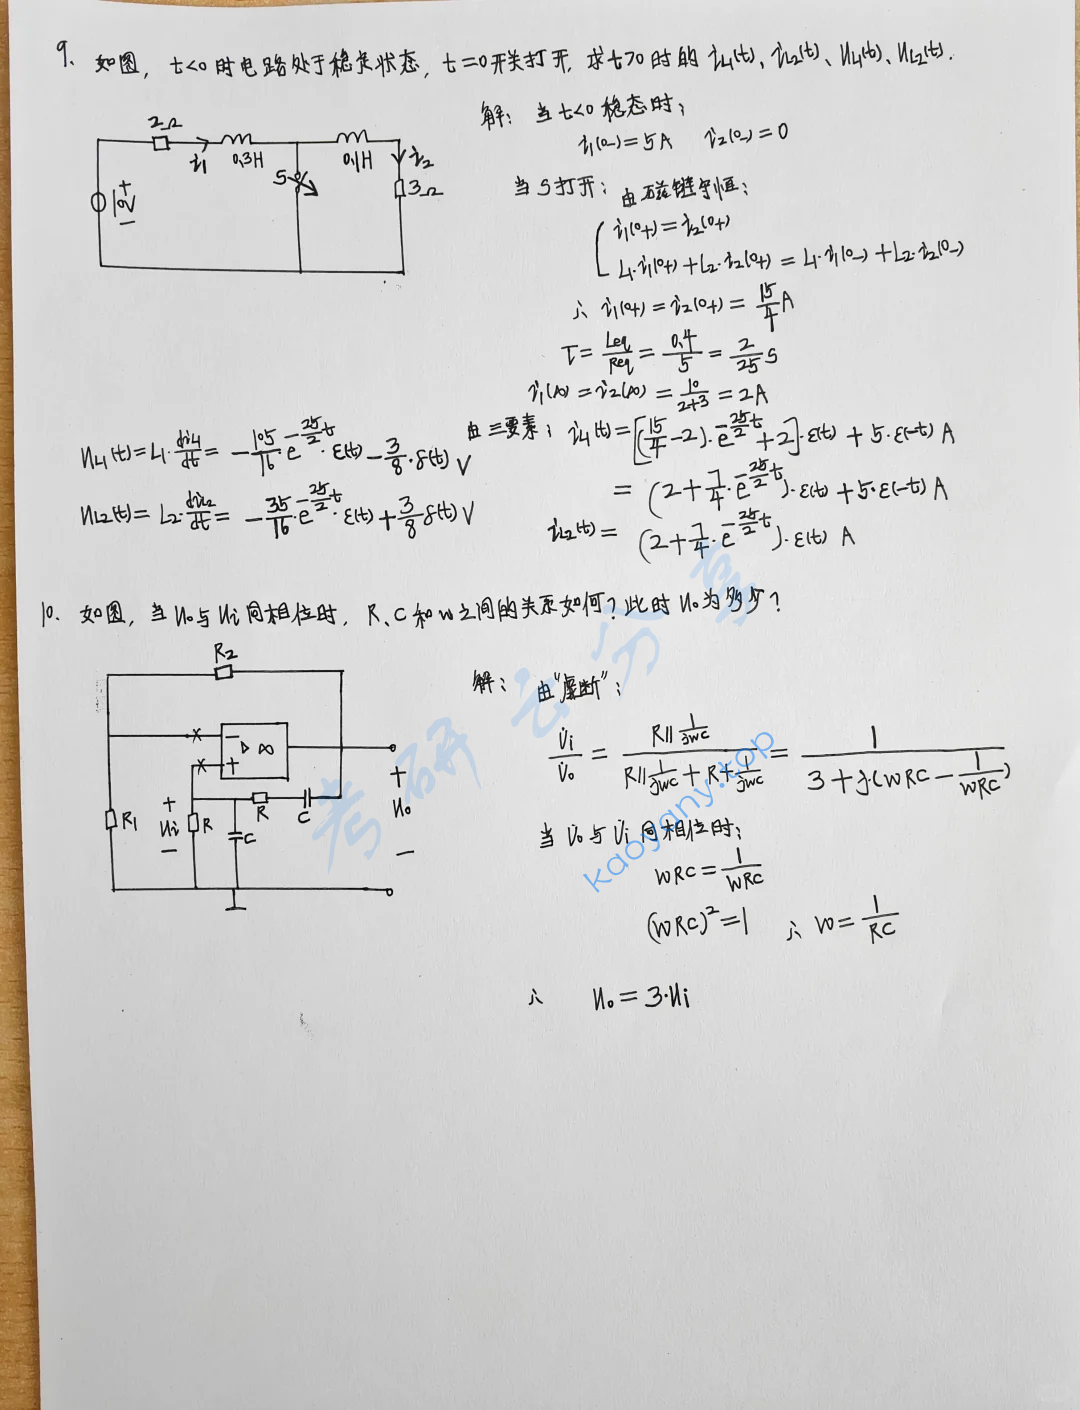 9. 如图, t<0时电路处于稳定状态, t=0开关打开, 求t>0时的 iL1(t)、iL2(t)、UL1(t)、UL2(t).
2Ω
i1
0.3H
0.1H
i2
S
3Ω
+
10V
−
解: 当t<0稳态时:
i1(0-)=5A i2(0-)=0
当S打开: 由磁链守恒:
i1(0+)=i2(0+)
L1·i1(0+)+L2·i2(0+)=L1·i1(0-)+L2·i2(0-)
∴ i1(0+)=i2(0+)=15/4 A
τ=Leq/Req=0.4/5=2/25 s
i1(∞)=i2(∞)=10/(2+3)=2A
由三要素: iL1(t)=[(15/4-2)·e^(-25/2 t)+2]·ε(t)+5·ε(-t) A
=(2+7/4·e^(-25/2 t))·ε(t)+5·ε(-t) A
iL2(t)=(2+7/4·e^(-25/2 t))·ε(t) A
UL1(t)=L1·diL1/dt=-105/16 e^(-25/2 t)·ε(t)-3/8·δ(t) V
UL2(t)=L2·diL2/dt=-35/16·e^(-25/2 t)·ε(t)+3/8 δ(t) V
10. 如图, 当U0与Ui同相位时, R、C和w之间的关系如何? 此时U0为多少?
R2
− ▷ ∞
+
R1
+
Ui
−
R
C
R
C
+
U0
−
解: 由"虚断":
U̇i/U̇0 = (R∥1/jwC)/(R∥1/jwC+R+1/jwC) = 1/(3+j(wRC-1/wRC))
当U̇0与U̇i同相位时:
wRC=1/wRC
(wRC)²=1 ∴ w=1/RC
∴ U0=3·Ui
考研云分享
kaoyany.top